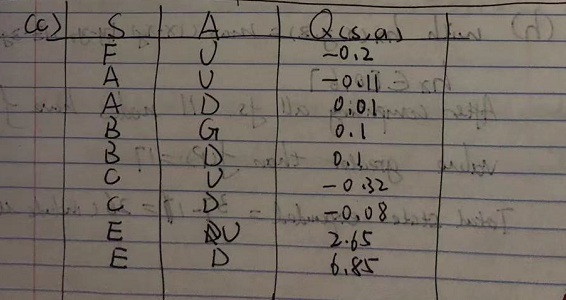 (c) S A Q(s,a)
F U -0.2
A U -0.11
A D 0.01
B G 0.1
B D 0.1
C U -0.32
C D -0.08
E U 2.65
E D 6.85